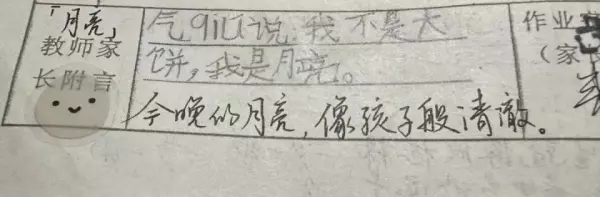 「月亮」
教师家
长附言
气qiú说:我不是大
饼,我是月亮。
今晚的月亮,像孩子般清澈。
作业
(家